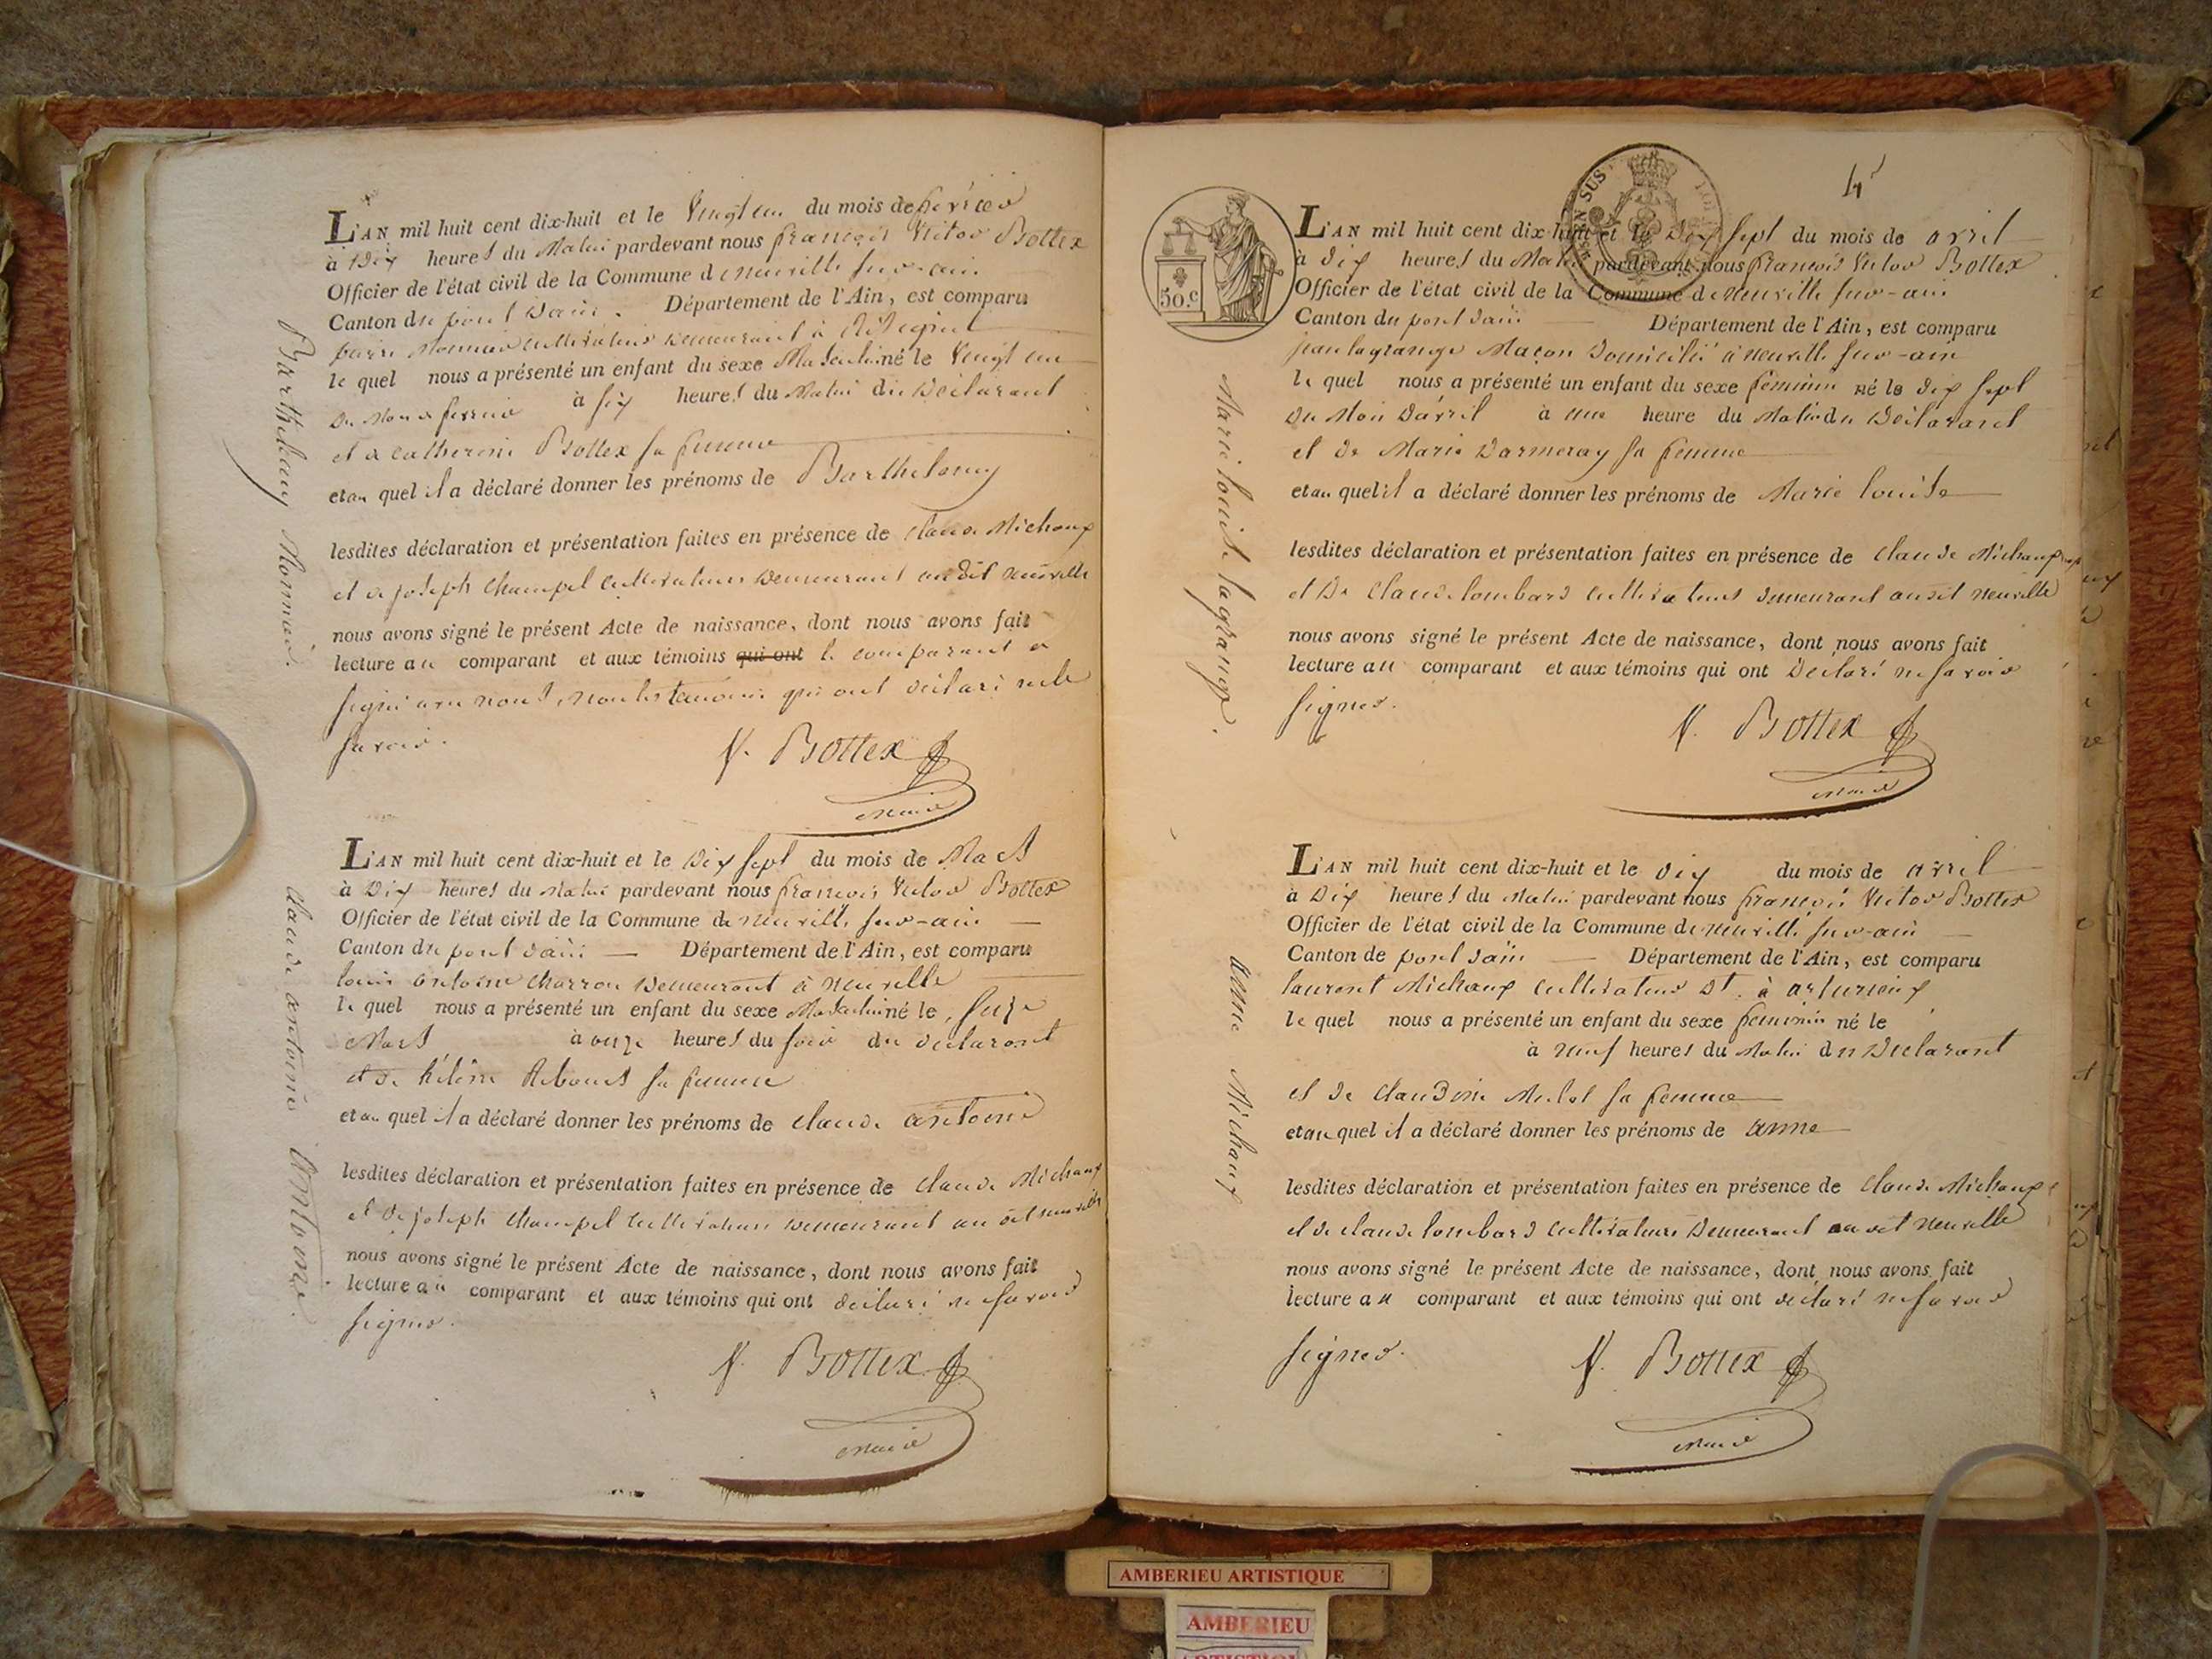 L'AN mil huit cent dix-huit et le Vingt un du mois de fevrier
à Dix heures du Matin pardevant nous françois Victor Bottex
Officier de l'état civil de la Commune de neuville sur-ain
Canton du pont Dain. Département de l'Ain, est comparu
pierre Monnier cultivateur demeurant à
le quel nous a présenté un enfant du sexe Masculin né le Vingt un
Du Mois de fevrier à six heures du Matin du Déclarant
et de catherine Bottex sa femme
et au quel il a déclaré donner les prénoms de Barthelemy
lesdites déclaration et présentation faites en présence de claude Michaux
et de joseph champel cultivateurs demeurant au dit neuville
nous avons signé le présent Acte de naissance, dont nous avons fait
lecture au comparant et aux témoins qui ont le comparant a
signé avec nous, non les temoins qui ont déclaré ne le
savoir.
V. Bottex
maire
Barthelemy Monnier.
L'AN mil huit cent dix-huit et le Dix sept du mois de Mars
à Dix heures du Matin pardevant nous françois Victor Bottex
Officier de l'état civil de la Commune de neuville sur-ain
Canton du pont dain Département de l'Ain, est comparu
louis antoine charron demeurant à neuville
le quel nous a présenté un enfant du sexe Masculin né le seize
Mars à onze heures du soir du déclarant
et de hélène Rebours sa femme
et au quel il a déclaré donner les prénoms de claude antoine
lesdites déclaration et présentation faites en présence de claude Michaux
et de joseph champel cultivateurs demeurant au dit neuville
nous avons signé le présent Acte de naissance, dont nous avons fait
lecture au comparant et aux témoins qui ont déclaré ne savoir
signer.
V. Bottex
maire
claude antoine Antoine.
4
50.c
L'AN mil huit cent dix-huit et le Dix sept du mois de avril
à dix heures du Matin pardevant nous françois Victor Bottex
Officier de l'état civil de la Commune de neuville sur-ain
Canton du pont dain Département de l'Ain, est comparu
jean lagrange Maçon Domicilié à neuville sur-ain
le quel nous a présenté un enfant du sexe féminin né le dix sept
du Mois Davril à une heure du Matin du Déclarant
et de Marie Darmeray sa femme
et au quel il a déclaré donner les prénoms de Marie louise
lesdites déclaration et présentation faites en présence de claude Michaux
et De claude lombard cultivateurs demeurant au dit neuville
nous avons signé le présent Acte de naissance, dont nous avons fait
lecture au comparant et aux témoins qui ont Déclaré ne savoir
signer.
V. Bottex
maire
Marie louise lagrange.
L'AN mil huit cent dix-huit et le dix du mois de avril
à Dix heures du Matin pardevant nous françois Victor Bottex
Officier de l'état civil de la Commune de neuville sur-ain
Canton de pont dain Département de l'Ain, est comparu
laurent Michaux cultivateur dt. à
le quel nous a présenté un enfant du sexe feminin né le
à neuf heures du Matin du Déclarant
et de claudine sa femme
et au quel il a déclaré donner les prénoms de anne
lesdites déclaration et présentation faites en présence de claude Michaux
et de claude lombard cultivateurs Demeurant au dit neuville
nous avons signé le présent Acte de naissance, dont nous avons fait
lecture au comparant et aux témoins qui ont déclaré ne savoir
signer.
V. Bottex
maire
anne Michaux
AMBERIEU ARTISTIQUE
AMBERIEU